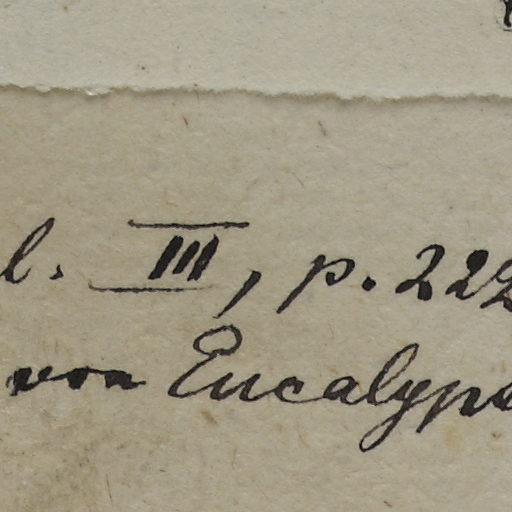 l. III, p. 222
von Eucalyp